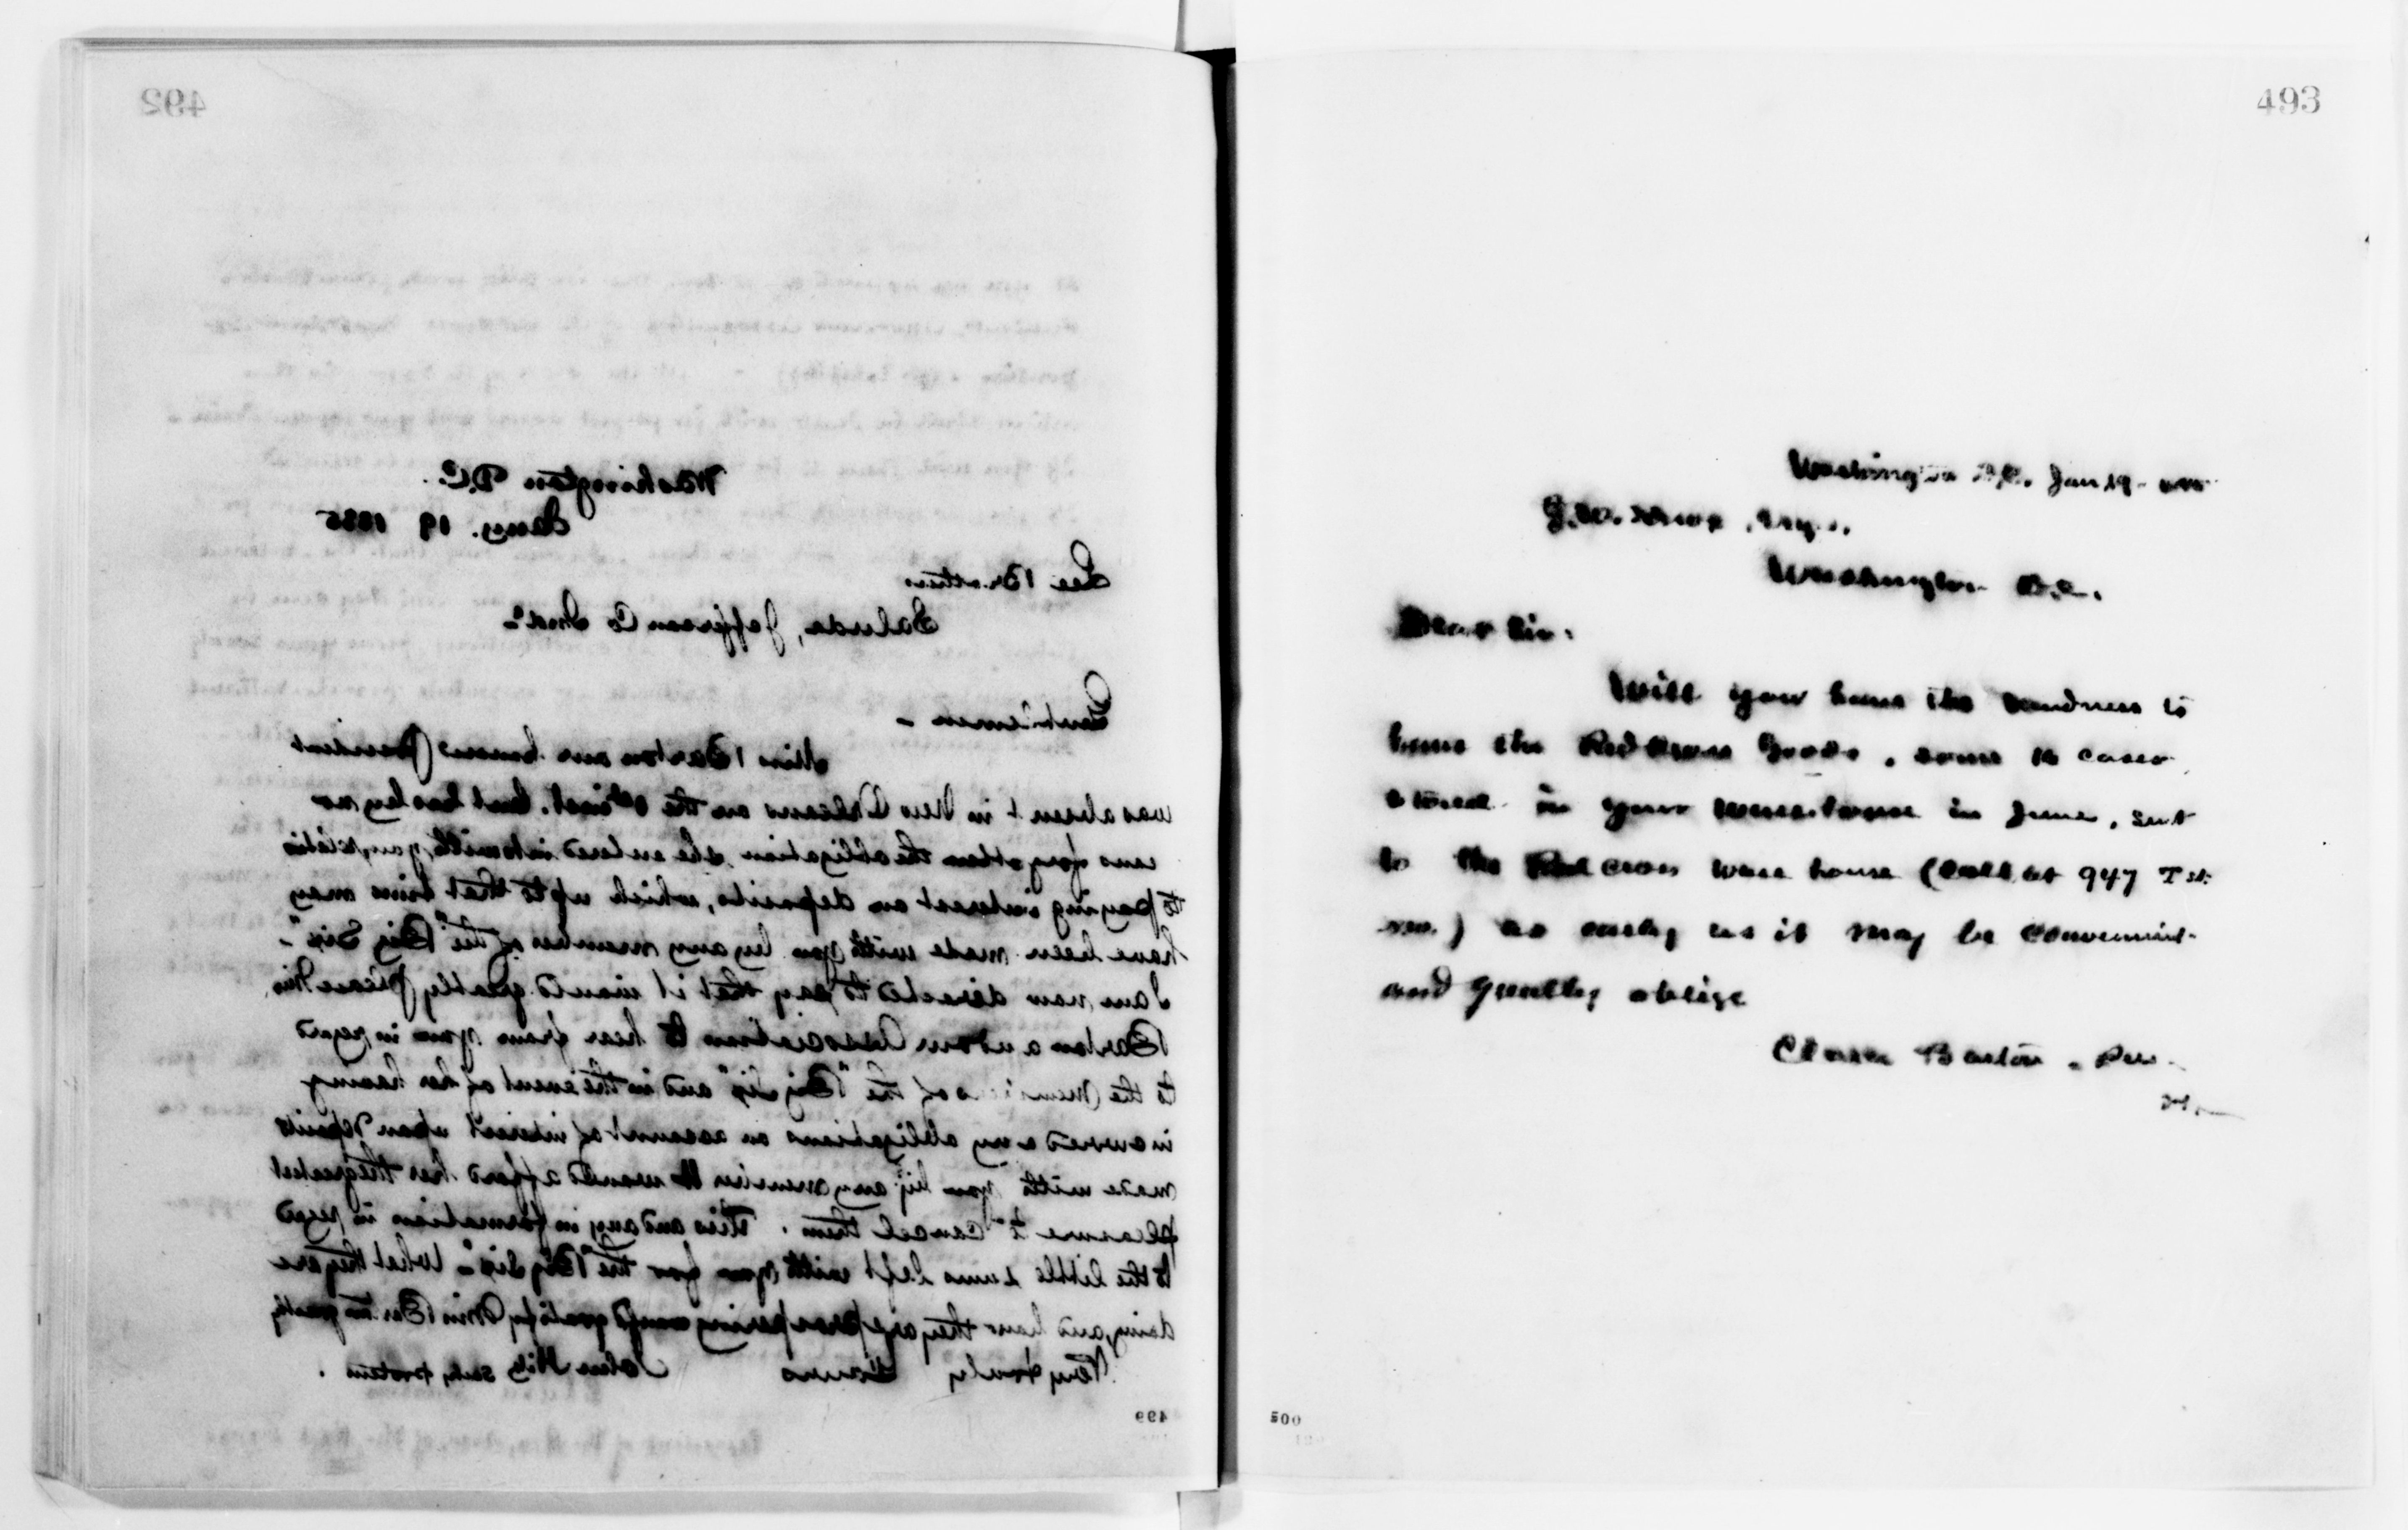 492
Washington D.C.
Jany. 19 1885
Lee Brothers
Saluda, Jefferson Co Inda
Gentlemen -
Miss Barton our honored President
was absent in New Orleans on the inst. but has by no
means forgotten the obligation she entered into with you, relative
to paying interest on deposits, which up to that time may
have been made with you by any member of the "Big Six" -
I am now directed to say that it would greatly please Miss
Barton and our Association to hear from you in regard
to the Members of the "Big Six" and in the event of her having
incurred any obligations on account of interest upon deposits
made with you by any member it would afford her the greatest
pleasure to cancel them. This and any information in regard
to the little sums left with you for the "Big Six" - What they are
doing, and how they are prospering would gratify Miss Barton greatly
Very truly Yours John Hitz secy protem.
499
493
Washington D.C. Jan 19
Washington D.C.
Dear Sir:
Will you have the kindness to
have the Red Cross Goods, some cases
stored in your warehouse in June, sent
to the Red Cross ware house (Call at 947 T St.
N.W.) as early as it may be convenient
and greatly oblige
Clara Barton - Pres
500